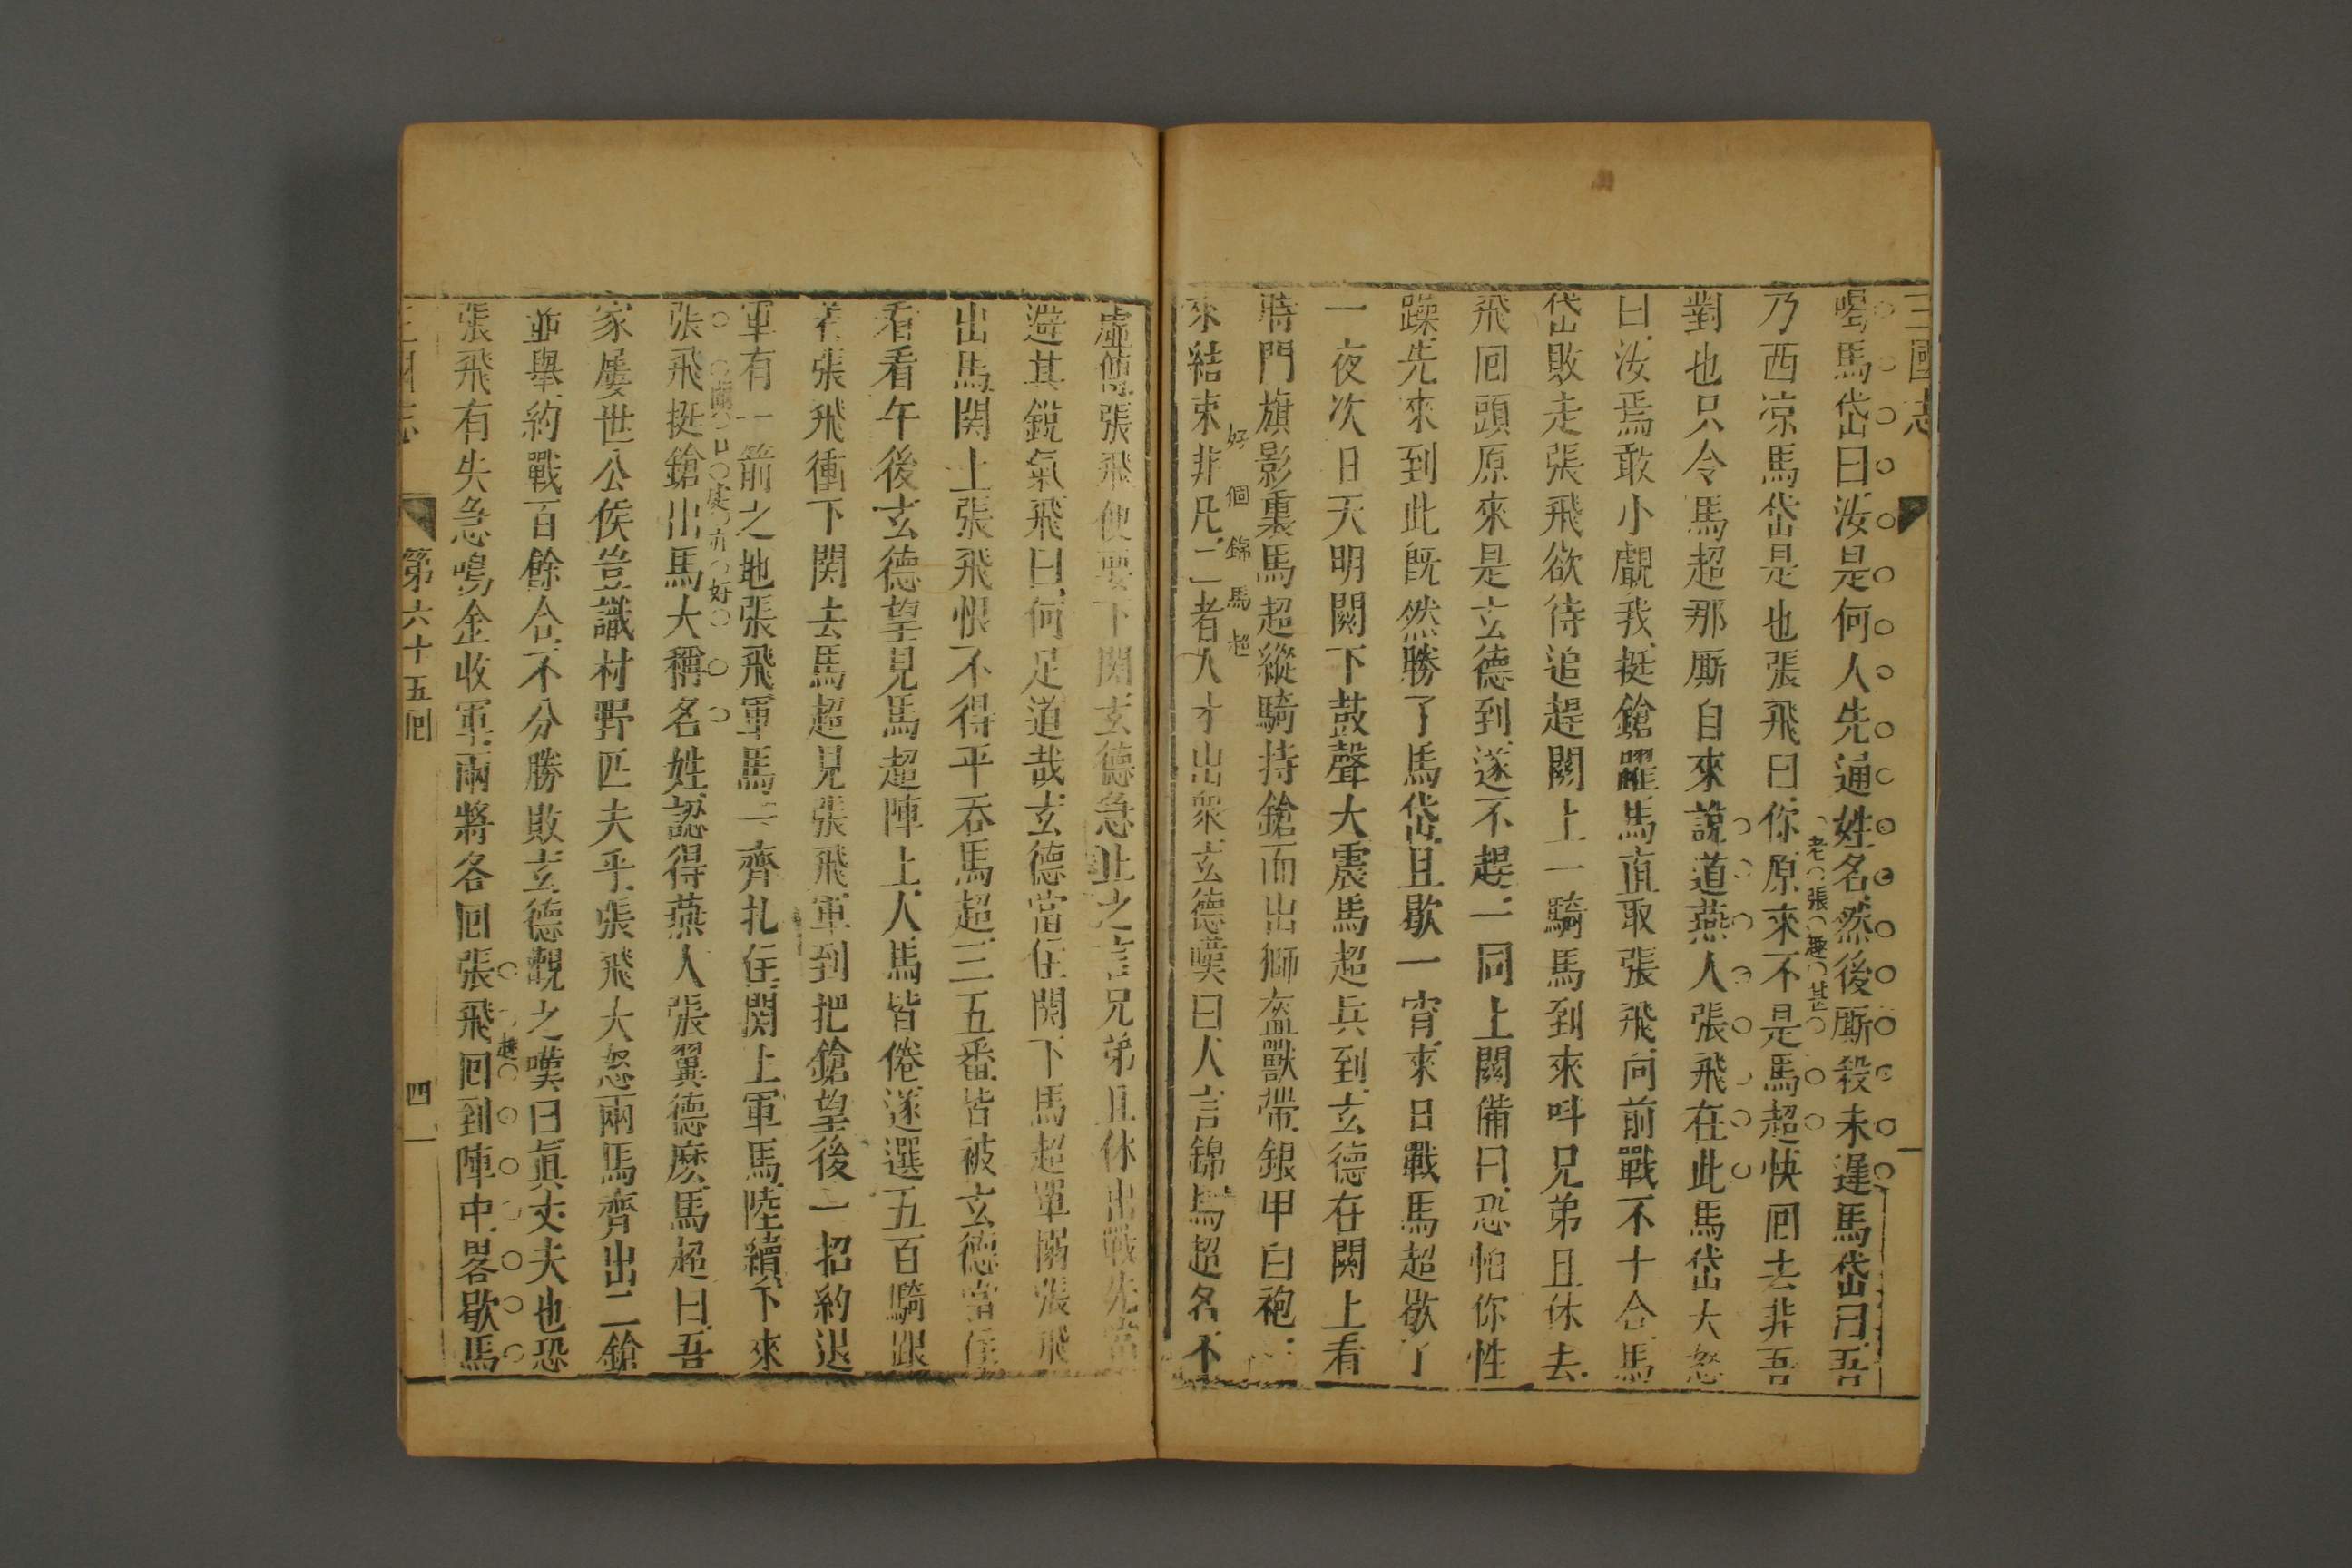 三國志
喝馬岱曰汝是何人先通姓名然後厮殺未遲馬岱曰吾
乃西凉馬岱是也張飛曰你原來不是馬超快囘去非吾
老張趣甚
對也只令馬超那厮自來說道燕人張飛在此馬岱大怒
曰汝焉敢小覷我挺鎗躍馬直取張飛向前戰不十合馬
岱敗走張飛欲待追趕關上一騎馬到來呌兄弟且休去
飛囘頭原來是玄德到遂不趕一同上關備曰恐怕你性
躁先來到此旣然勝了馬岱且歇一宵來日戰馬超歇了
一夜次日天明關下鼓聲大震馬超兵到玄德在關上看
時門旗影裏馬超縱騎持鎗而出獅盔獸帶銀甲白袍一
好個錦馬超
來結束非凡二者人才出衆玄德嘆曰人言錦馬超名不
虛傳張飛便要下関玄德急止之言兄弟且休出戰先當
避其銳氣飛曰何足道哉玄德當住関下馬超單搦張飛
出馬関上張飛恨不得平吞馬超三五番皆被玄德當住
看看午後玄德望見馬超陣上人馬皆倦遂選五百騎跟
着張飛衝下関去馬超見張飛軍到把鎗望後一招約退
軍有一箭之地張飛軍馬一齊扎住関上軍馬陸續下來
張飛挺鎗出馬大稱名姓認得燕人張翼德麽馬超曰吾
家屢世公侯豈識村野匹夫乎張飛大怒兩馬齊出二鎗
並舉約戰百餘合不分勝敗玄德觀之嘆曰眞丈夫也恐
張飛有失急鳴金收軍兩將各囘張飛囘到陣中畧歇馬
第六十五囘
四